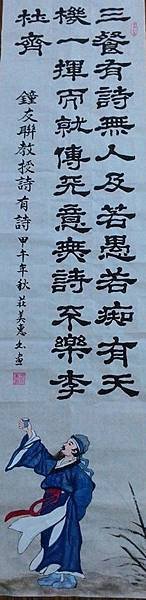 三餐有詩無人及若愚若痴有天
機一揮而就傳意無詩不樂李
杜齊
鐘友聯教授詩有詩甲午年秋莊美惠畫